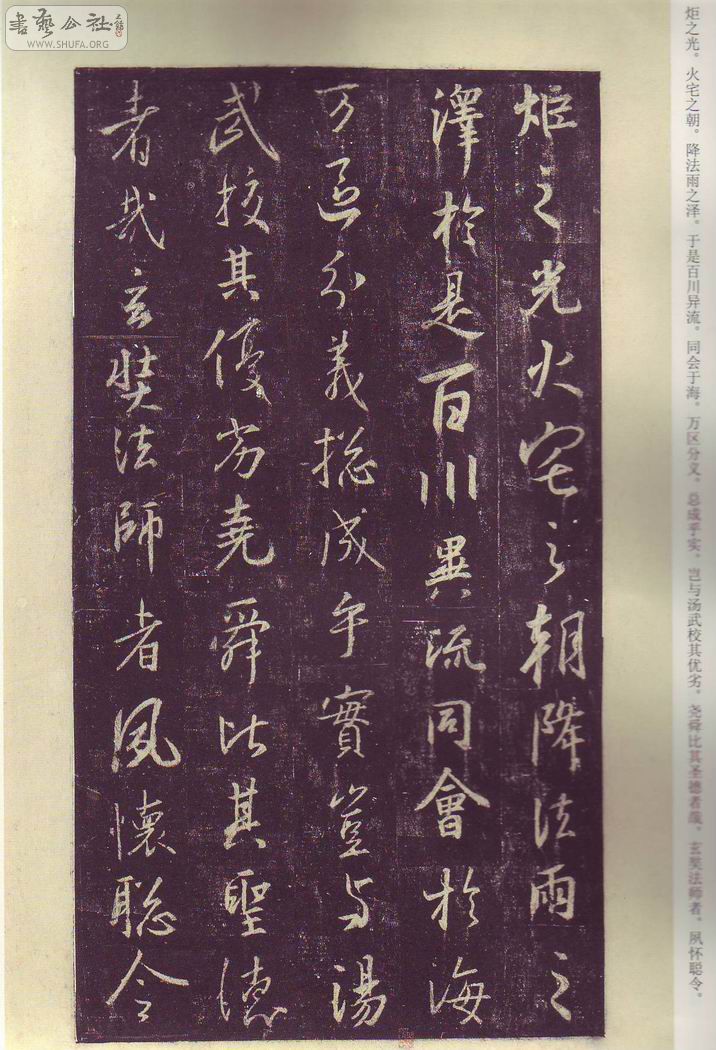 書藝公社
WWW.SHUFA.ORG
炬之光。火宅之朝。降法雨之泽。于是百川异流。同会于海。万区分义。总成乎实。岂与汤武校其优劣。尧舜比其圣德者哉。玄奘法师者。夙怀聪令。
炬之光火宅之朝降法雨之
澤於是百川異流同會於海
万區分義揔成乎實豈与湯
武校其優劣堯舜比其聖德
者哉玄奘法師者夙懷聡令